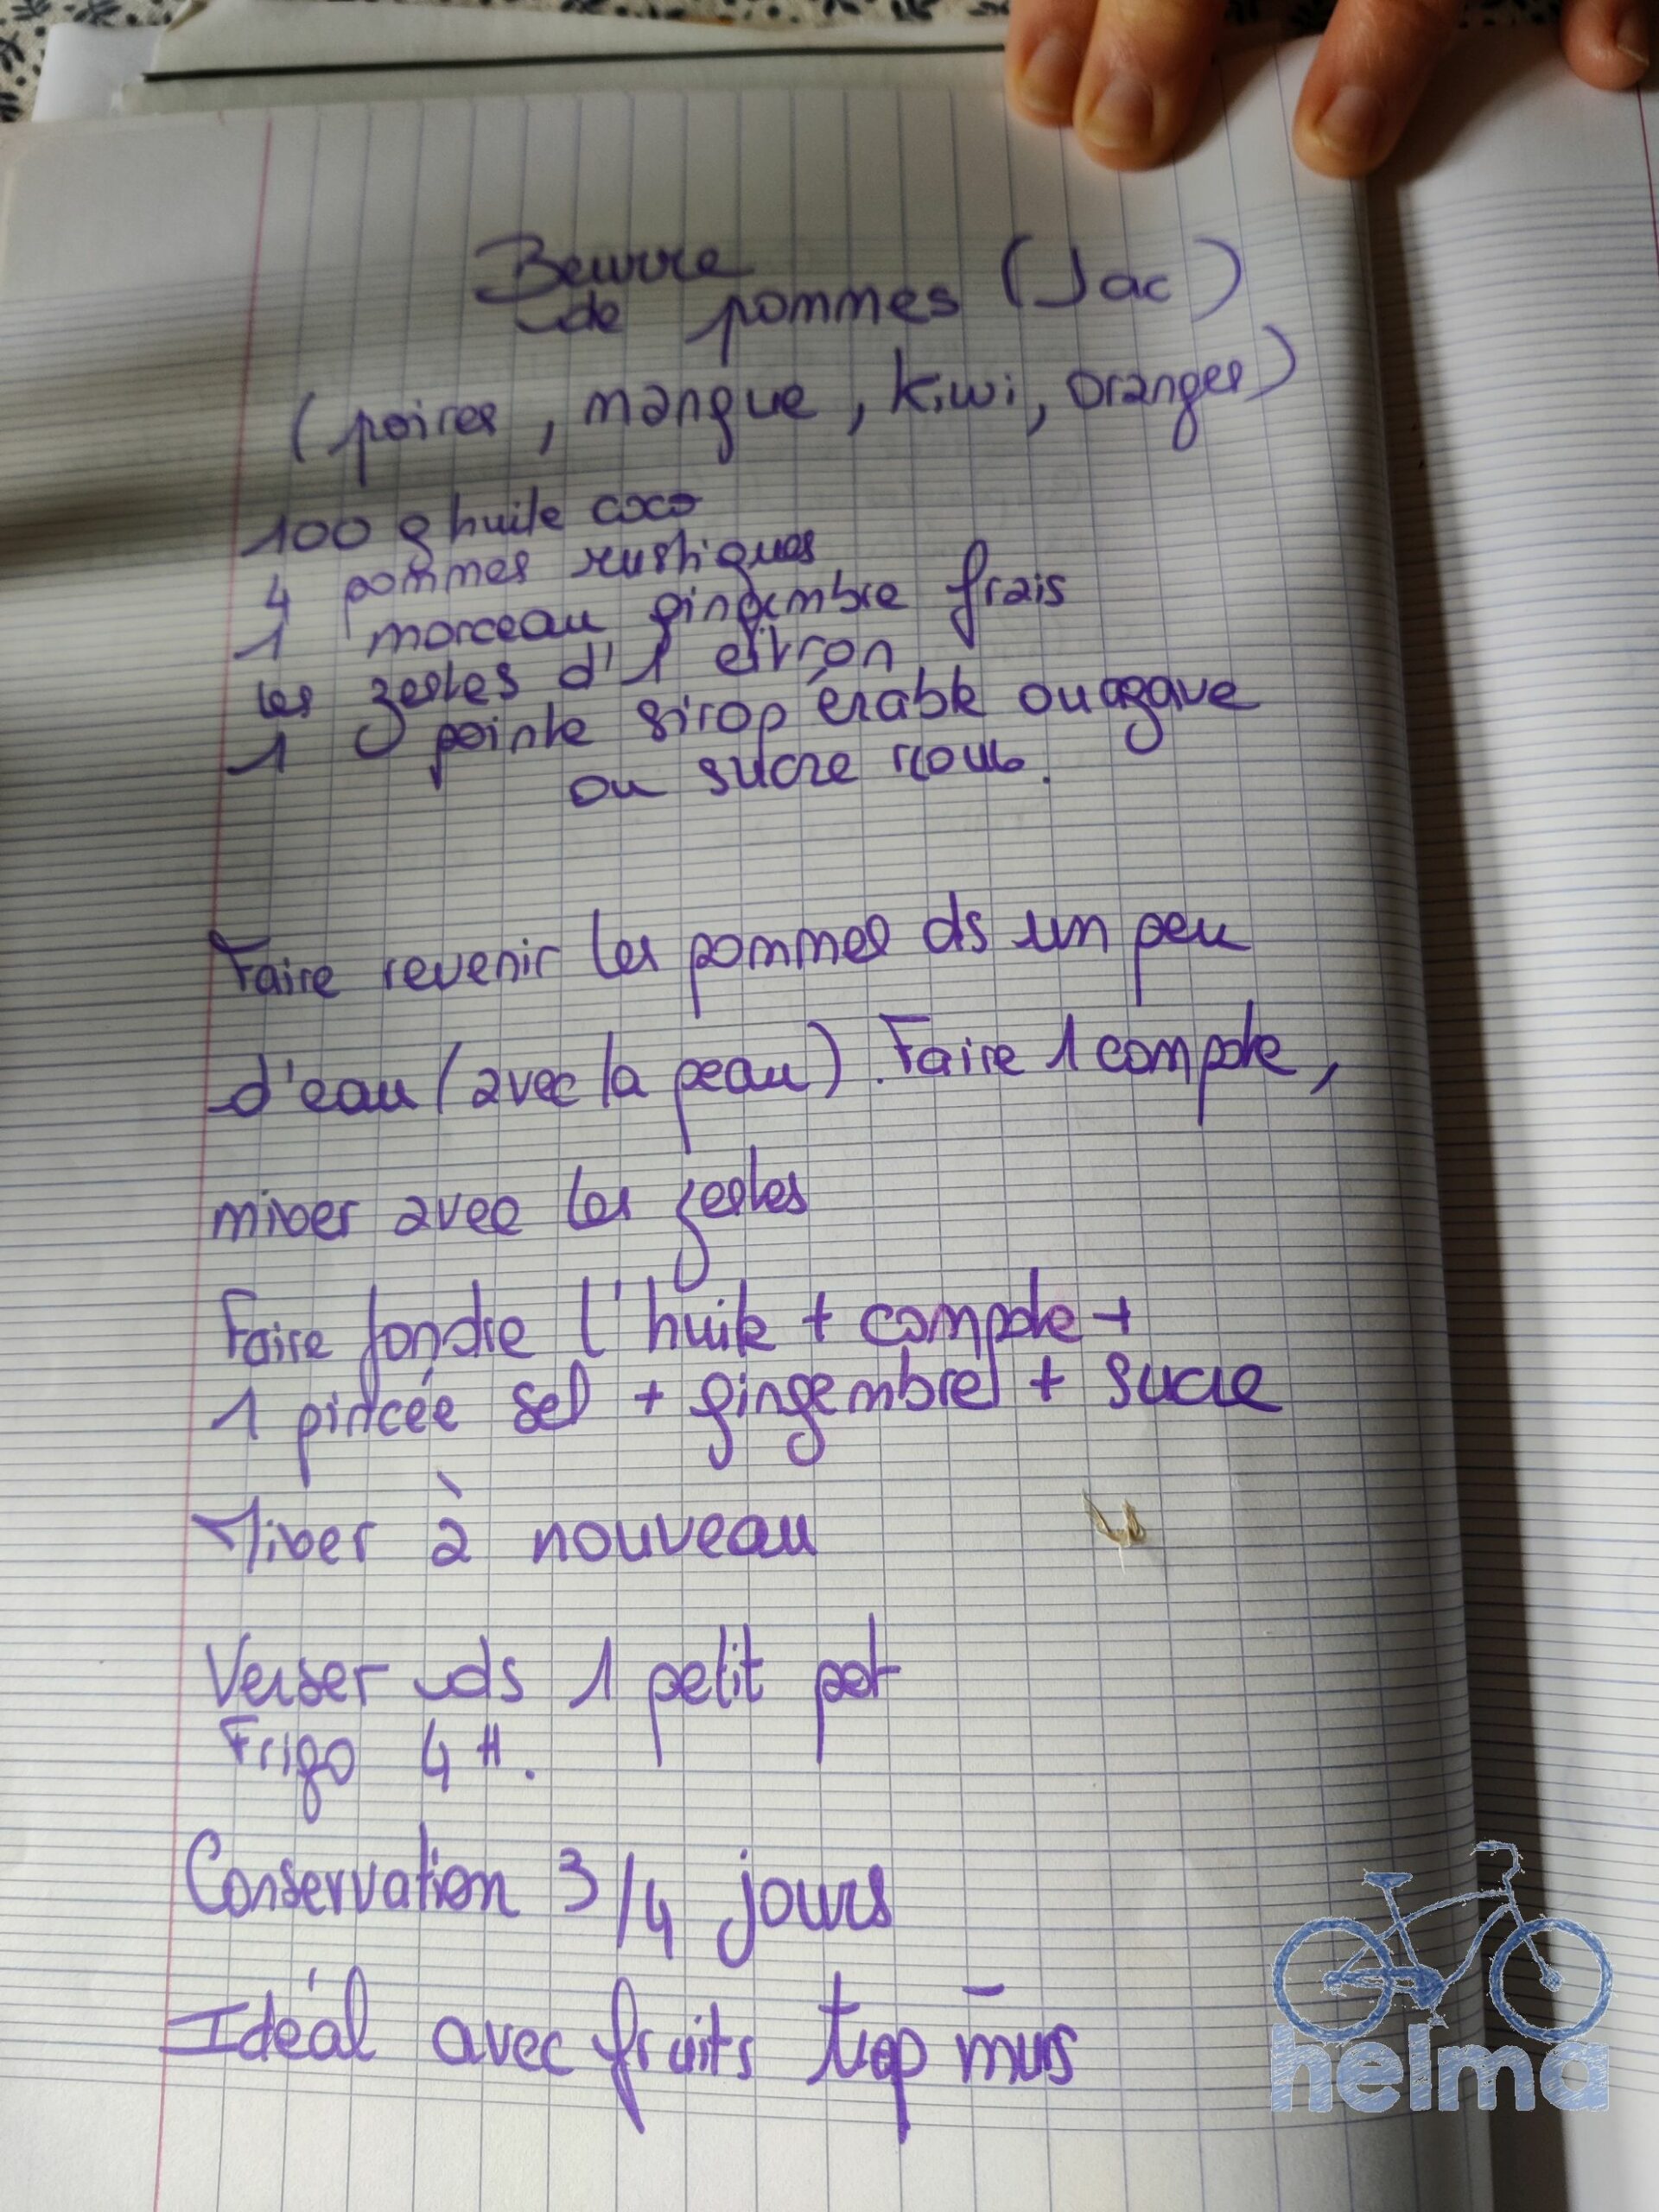 Beurre
de pommes (Jac)
(poires, mangue, kiwi, oranges)
100 g huile coco
4 pommes rustiques
1 morceau gingembre frais
les zestes d'1 citron
1 pointe sirop érable ou agave
ou sucre roux.
Faire revenir les pommes ds un peu
d'eau (avec la peau). Faire 1 compote,
mixer avec les zestes
Faire fondre l'huile + compote +
1 pincée sel + gingembre + sucre
Mixer à nouveau
Verser ds 1 petit pot
Frigo 4 H.
Conservation 3/4 jours
Idéal avec fruits trop murs
helma